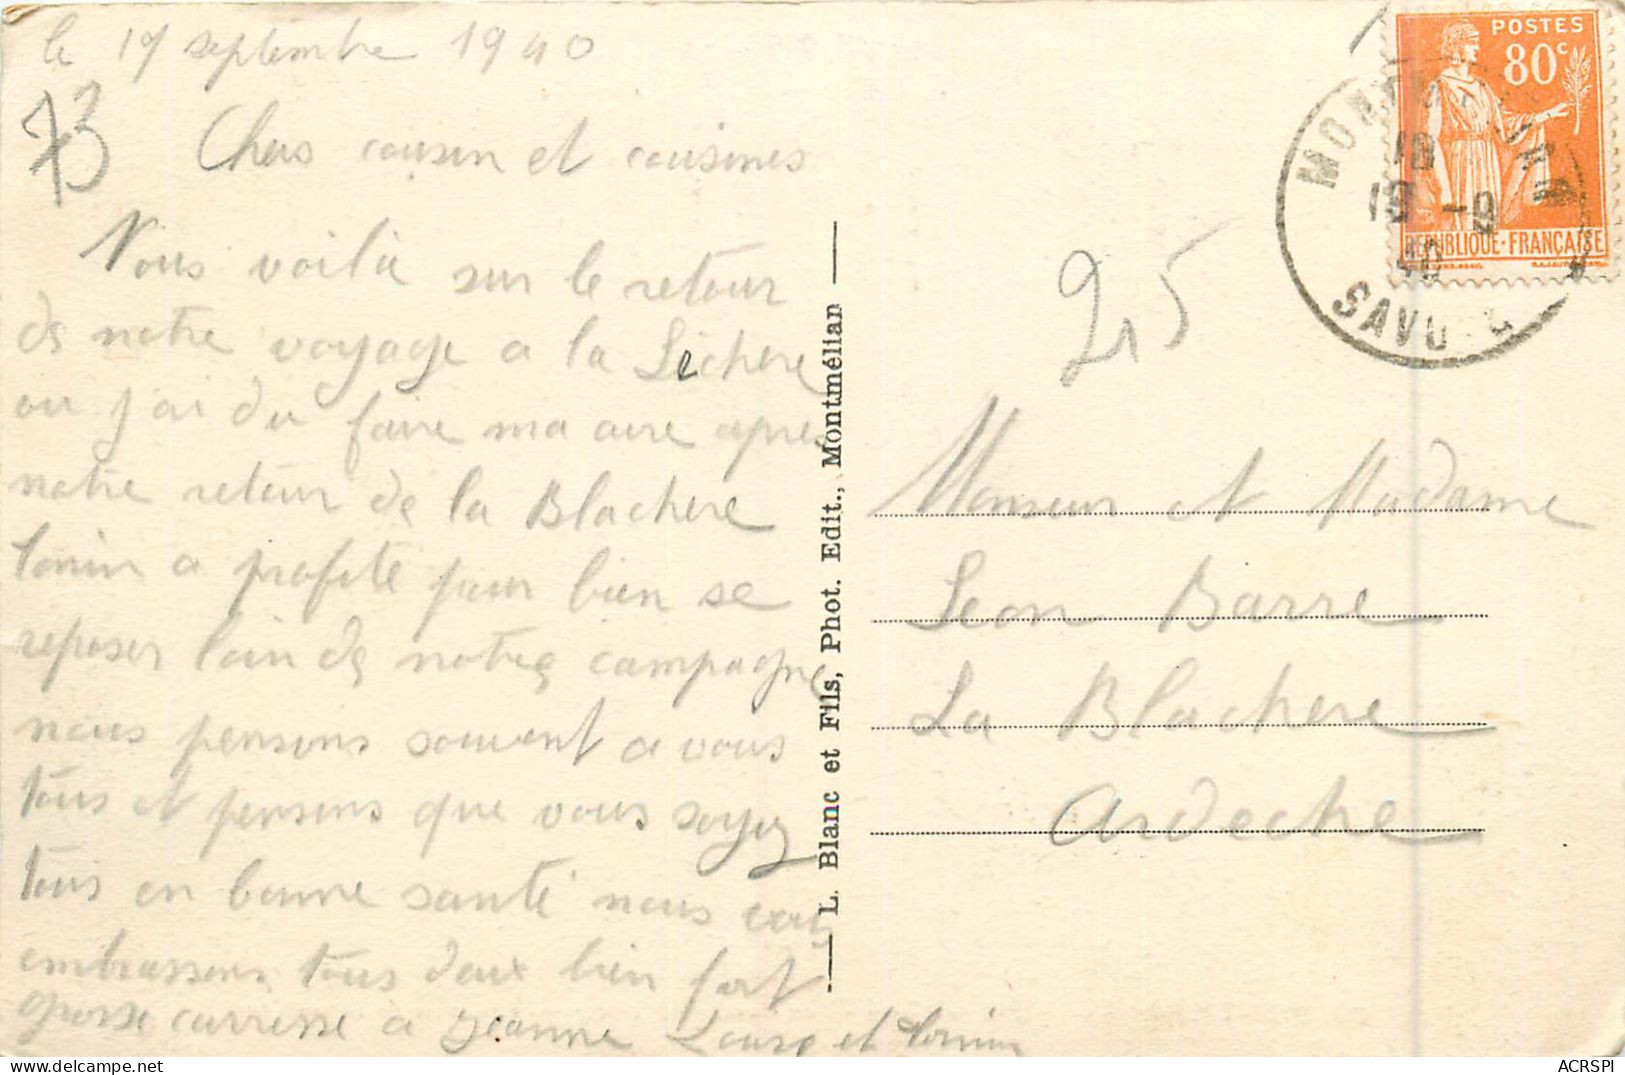 le 17 septembre 1940
73
Chers cousin et cousines
Nous voila sur le retour
de notre voyage a la Léchère
ou j'ai du faire ma cure apres
notre retour de la Blachere
Tonin a profité pour bien se
reposer loin de notre campagne
nous pensons souvent a vous
tous et pensons que vous soyez
tous en bonne santé nous vous
embrassons tous deux bien fort
grosse carresse a Jeanne Louise et Tonin
L. Blanc et Fils, Phot. Edit., Montmélian
215
POSTES
80c
REPUBLIQUE-FRANÇAISE
18
19 -9
40
SAVOIE
Monsieur et Madame
Leon Barre
La Blachere
Ardeche
ACRSPI